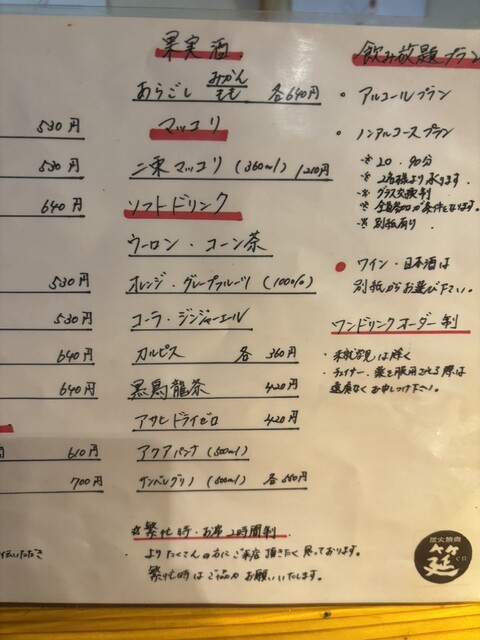 530円
530円
640円
530円
530円
640円
640円
610円
700円
果実酒
あらごし みかん もも 各640円
マッコリ
二東マッコリ (360ml) 1210円
ソフトドリンク
ウーロン・コーン茶
オレンジ・グレープフルーツ (100%)
コーラ・ジンジャーエール
カルピス 各 360円
黒烏龍茶 420円
アサヒドライゼロ 420円
アクアパンナ (500ml)
サンペレグリノ (500ml) 各550円
☆繁忙時・お席2時間制
・よりたくさんの方にご来店頂きたく思っております。
繁忙時はご協力お願いいたします。
飲み放題プラン
• アルコールプラン
• ノンアルコースプラン
※ 120・90分
※ 2名様より承ります。
※ グラス交換制
※ 全員参加が条件となります。
※ 別紙有り
● ワイン・日本酒は
別紙からお選び下さい。
ワンドリンクオーダー制
・未就学児は除く
・ドライバー・薬を服用される際は
遠慮なくお申しつけ下さい。
炭火焼肉
筵